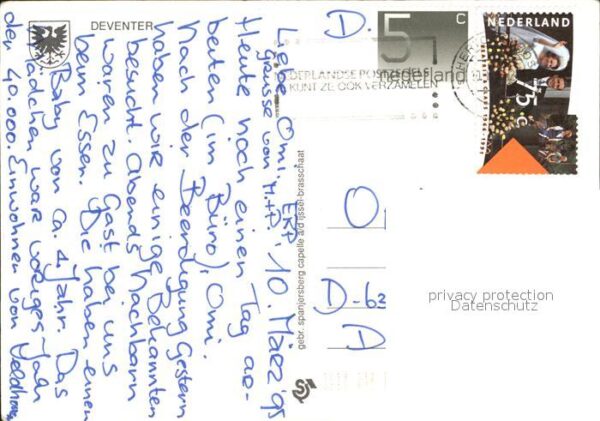 DEVENTER
Liebe Omi, 10. März '95
grüsse von M.+P. ERP
Heute noch einen Tag ar-
beiten (im Büro), Omi.
Nach der Beerdigung gestern
haben wir einige Bekannten
besucht. Abends Nachbarn
waren zu Gast bei uns
beim Essen. Die haben einen
Baby von ca. 4 Jahr. Das
Mädchen war voriges Jahr
der 40.000. Einwohner von
gebr. spanjersberg capelle a/d ijssel-brasschaat
D.
5 C
nederland
NEDERLAND
75 c
NEDERLANDSE POSTZEGELS
KUNT ZE OOK VERZAMELEN
O
D-63
A
privacy protection
Datenschutz